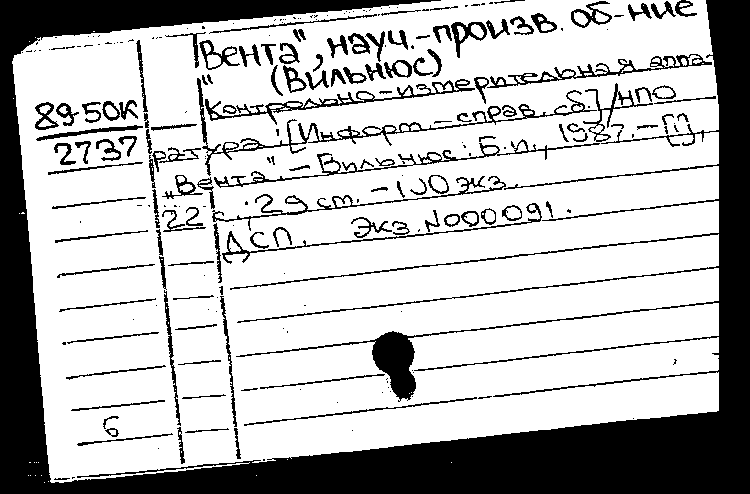 "Вента", науч.-произв. об-ние
(Вильнюс)
89-50К
Контрольно-измерительная аппа-
2737
ратура: [Информ.-справ. сб] / НПО
"Вента". - Вильнюс: Б.и., 1987. - [1],
22 с.; 29 см. - 100 экз.
ДСП. Экз. N000091.
6